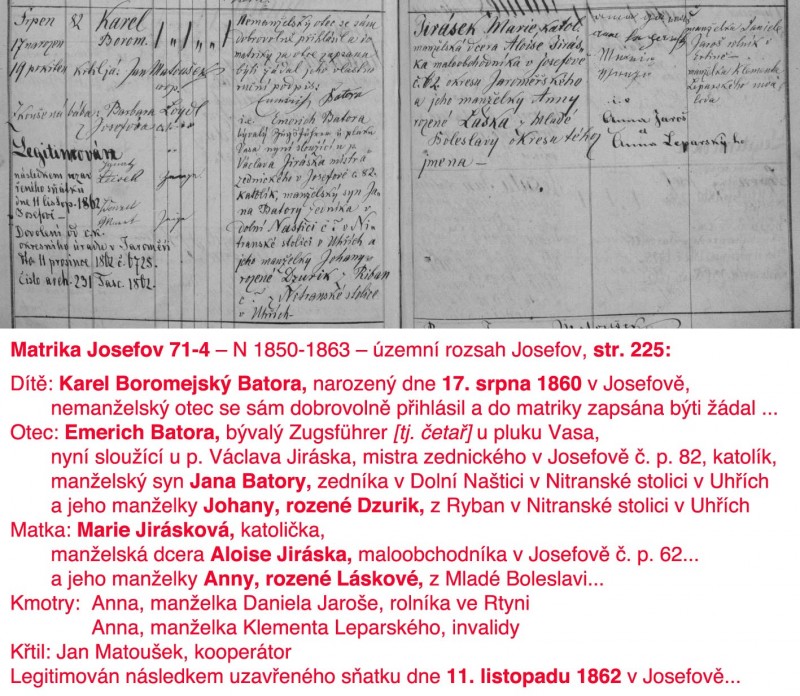 Srpen 82 Karel
17 narozen Borom.
19 pokřtěn křtil já: Jan Matoušek
koop.
Zkoušená bába: Barbara Loydl
z Josefova
Legitimován
následkem uzav
řeného sňatku
dne 11 listop. 1862
v Josefově –
Dovolení od c.k.
okresního úřadu v Jaroměři
11 prosince 1862 č. 6728.
číslo arch. 231 Fasc. 1862.
Nemanželský otec se sám
dobrovolně přihlásil a do
matriky za otce zapsána
býti žádal jeho vlastno
ruční podpis:
Emerich Batora
Emerich Batora
bývalý Zugsführer u pluku
Vasa nyní sloužící u p.
Václava Jiráska mistra
zednického v Josefově č. 82.
katolík, manželský syn Ja
na Batory zedníka v
dolní Naštici č. v Ni
transké stolici v Uhřích
a jeho manželky Johany
rozené Dzurik z Riban
č. v Nitranské stolice
v Uhřích
Jirásek Marie, katol.
manželská dcera Aloise Jirás
ka maloobchodníka v Josefově
č. 62 okresu Jaroměřského
a jeho manželky Anny
rozené Láska z Mladé
Boleslavy okresu téhož
jména –
Anna Jaroš
a
Anna Leparský
manželka Daniele
Jaroš rolník z
Rtině –
manželka Klementa
Leparského inva
lida
Matrika Josefov 71-4 – N 1850-1863 – územní rozsah Josefov, str. 225:
Dítě: Karel Boromejský Batora, narozený dne 17. srpna 1860 v Josefově,
nemanželský otec se sám dobrovolně přihlásil a do matriky zapsána býti žádal ...
Otec: Emerich Batora, bývalý Zugsführer [tj. četař] u pluku Vasa,
nyní sloužící u p. Václava Jiráska, mistra zednického v Josefově č. p. 82, katolík,
manželský syn Jana Batory, zedníka v Dolní Naštici v Nitranské stolici v Uhřích
a jeho manželky Johany, rozené Dzurik, z Ryban v Nitranské stolici v Uhřích
Matka: Marie Jirásková, katolička,
manželská dcera Aloise Jiráska, maloobchodníka v Josefově č. p. 62...
a jeho manželky Anny, rozené Láskové, z Mladé Boleslavi...
Kmotry: Anna, manželka Daniela Jaroše, rolníka ve Rtyni
Anna, manželka Klementa Leparského, invalidy
Křtil: Jan Matoušek, kooperátor
Legitimován následkem uzavřeného sňatku dne 11. listopadu 1862 v Josefově...